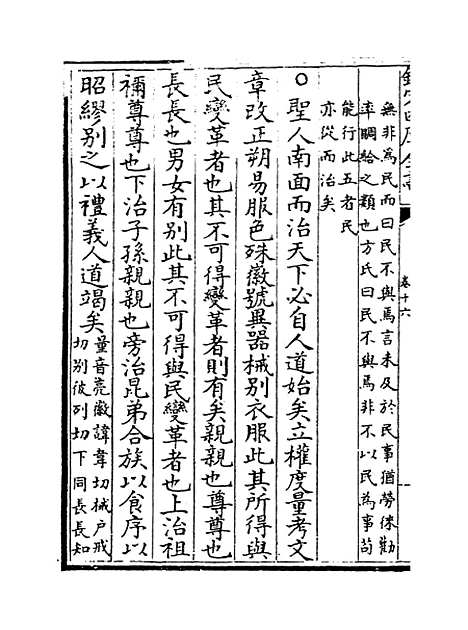 欽定四庫全書
卷十六
無非為民而曰民不與焉言未及於民事猶勞倈勸
率賙給之類也方氏曰民不與焉非不以民為事苟
能行此五者民
亦從而治矣
○聖人南面而治天下必自人道始矣立權度量考文
章改正朔易服色殊徽號異器械別衣服此其所得與
民變革者也其不可得變革者則有矣親親也尊尊也
長長也男女有別此其不可得與民變革者也上治祖
禰尊尊也下治子孫親親也旁治昆弟合族以食序以
昭繆別之以禮義人道竭矣
量音亮徽諱韋切械户戒
切别彼列切下同長長知